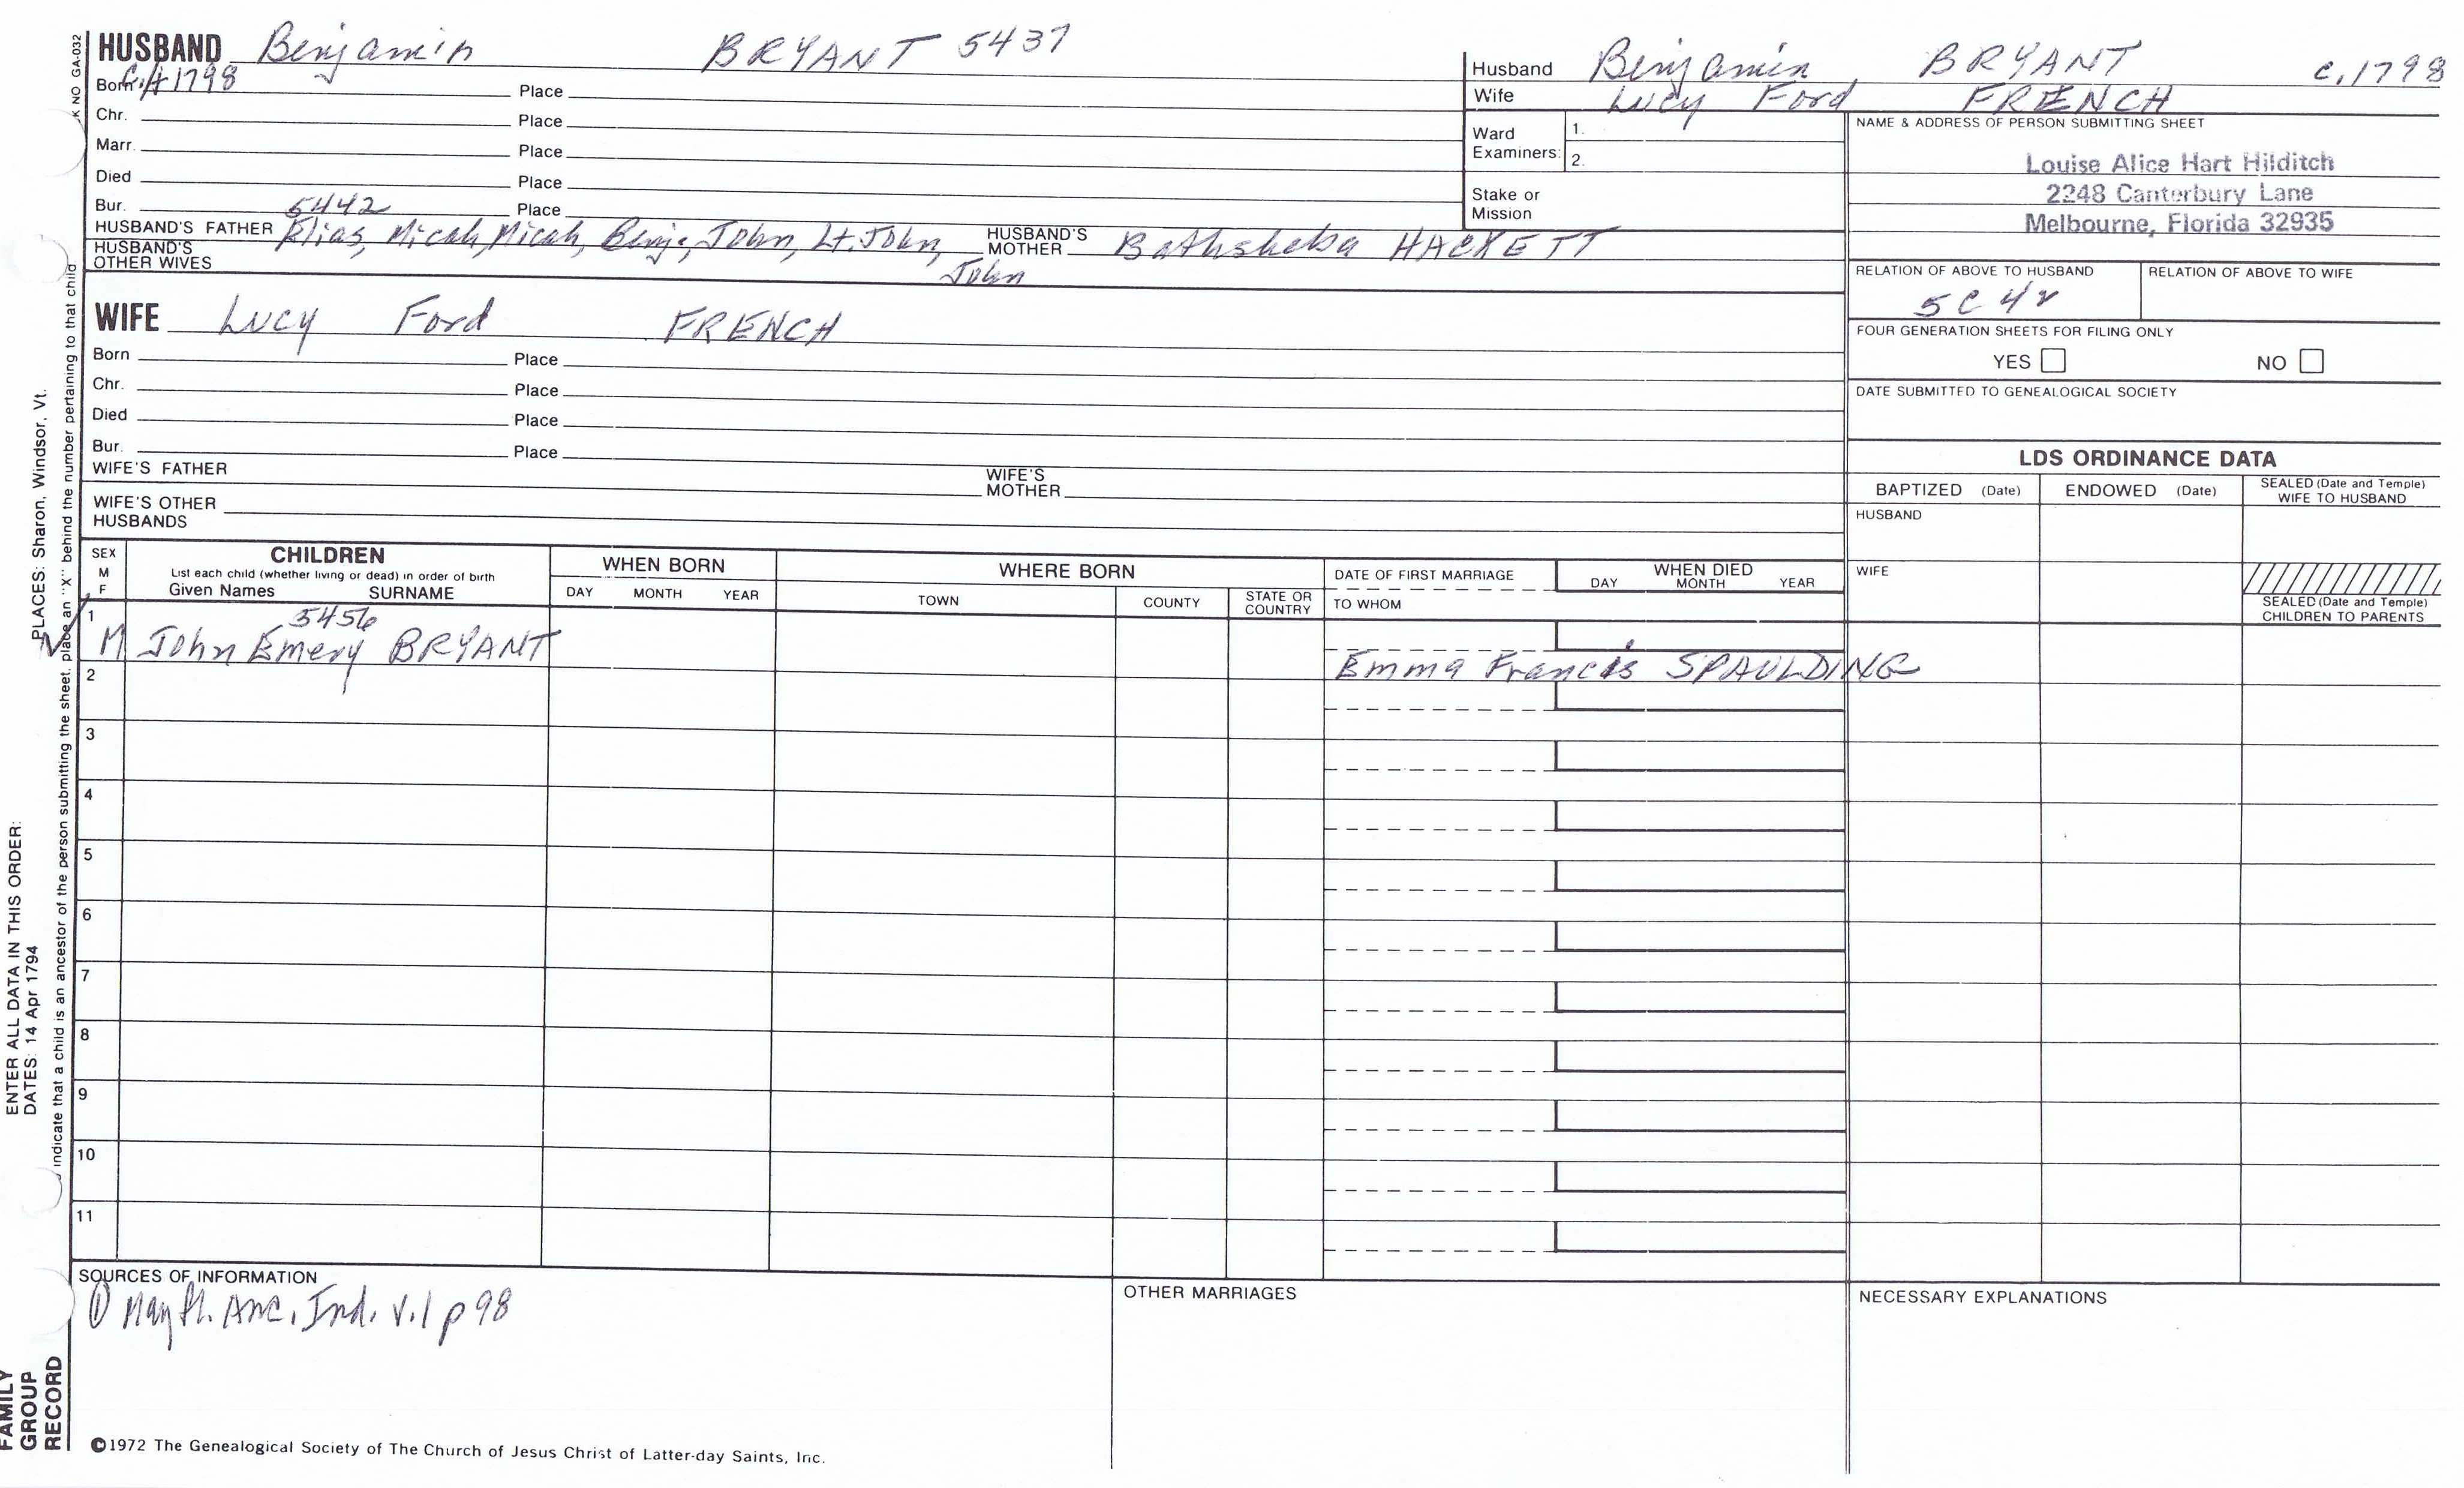 HUSBAND Benjamin BRYANT 5437
Born C. 1798 Place
Chr. Place
Marr. Place
Died Place
Bur. Place
5442
HUSBAND'S FATHER Elias, Micah, Micah, Benj., John, Lt. John, John
HUSBAND'S MOTHER Bathsheba HACKETT
HUSBAND'S OTHER WIVES
WIFE Lucy Ford FRENCH
Born Place
Chr. Place
Died Place
Bur. Place
WIFE'S FATHER WIFE'S MOTHER
WIFE'S OTHER HUSBANDS
Husband Benjamin, BRYANT c. 1798
Wife Lucy Ford FRENCH
Ward Examiners: 1.
2.
Stake or Mission
NAME & ADDRESS OF PERSON SUBMITTING SHEET
Louise Alice Hart Hilditch
2248 Canterbury Lane
Melbourne, Florida 32935
RELATION OF ABOVE TO HUSBAND RELATION OF ABOVE TO WIFE
5C 4r
FOUR GENERATION SHEETS FOR FILING ONLY
YES NO
DATE SUBMITTED TO GENEALOGICAL SOCIETY
LDS ORDINANCE DATA
BAPTIZED (Date) ENDOWED (Date) SEALED (Date and Temple) WIFE TO HUSBAND
HUSBAND
WIFE
SEALED (Date and Temple) CHILDREN TO PARENTS
SEX M F
CHILDREN
List each child (whether living or dead) in order of birth
Given Names SURNAME
WHEN BORN
DAY MONTH YEAR
WHERE BORN
TOWN COUNTY STATE OR COUNTRY
DATE OF FIRST MARRIAGE
TO WHOM
WHEN DIED
DAY MONTH YEAR
1 5456
M John Emery BRYANT Emma Francis SPAULDING
2
3
4
5
6
7
8
9
10
11
SOURCES OF INFORMATION
① Mayfl. Anc. Ind. v.1 p 98
OTHER MARRIAGES
NECESSARY EXPLANATIONS
©1972 The Genealogical Society of The Church of Jesus Christ of Latter-day Saints, Inc.
FAMILY GROUP RECORD
ENTER ALL DATA IN THIS ORDER:
DATES: 14 Apr 1794 PLACES: Sharon, Windsor, Vt.
indicate that a child is an ancestor of the person submitting the sheet, place an "X" behind the number pertaining to that child
NO GA-032